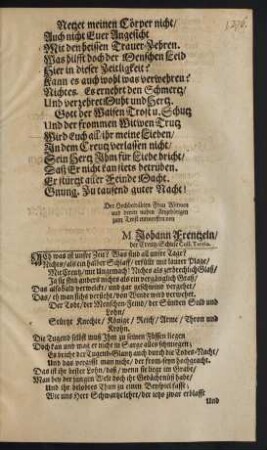 Netzet meinen Cörper nicht/
Auch nicht Euer Angesicht
Mit den heissen Trauer-Zehren.
Was hilfft doch der Menschen Leid
Hier in dieser Zeitligkeit?
Kann es auch wohl was verwehren?
Nichtes. Es ernehrt den Schmertz/
Und verzehret Muht und Hertz.
Gott der Waisen Trost u. Schutz
Und der frommen Witwen Trutz
Wird Euch all/ ihr meine Lieben/
In dem Creutz verlassen nicht/
Sein Hertz Ihm für Liebe bricht/
Daß Er nicht kan stets betrüben.
Er stürtzt aller Feinde Macht.
Gnung. Zu tausend guter Nacht!
Der Hochbetrübten Frau Witwen
und denen nahen Angehörigen
zum Trost entworffen von
M. Johann Frentzeln/
der Creutz-Schule Coll.
ACh was ist unser Zeit? Was sind all unser Tage?
Nichtes/ als ein halber Schlaff/ erfüllt mit lauter Plage/
Mit Creutz/ mit Ungemach? Nichts als zerbrechlich Glaß/
Ja sie sind anders nichts als ein vergänglich Graß/
Das alsobald verwelckt/ und gar geschwind vergehet/
Das/ eh man sichs versicht/ vom Winde wird verwehet.
Der Tode/ der Menschen Feind/ der Sünden Sold und
Lohn/
Stürtzt Knechte/ Könige/ Reich/ Arme/ Thron und
Krohn.
Die Tugend selbst muß Ihm zu seinen Füssen liegen
Doch kan und mag er nicht im Sarge alles schmiegen:
Es bricht der Tugend-Glantz auch durch des Todes-Nacht/
Und das vergisst man nicht/ der from-seyn hochgeacht.
Das ist ihr bester Lohn/ daß/ wenn sie liegt im Grabe/
Man bey der jungen Welt doch ihr Gedächtnüß habe/
Und ihr belobtes Thun zu einem Beyspiel fasse;
Wie uns Herr Schwartz lehret/ der itzo zwar erblasst
Und